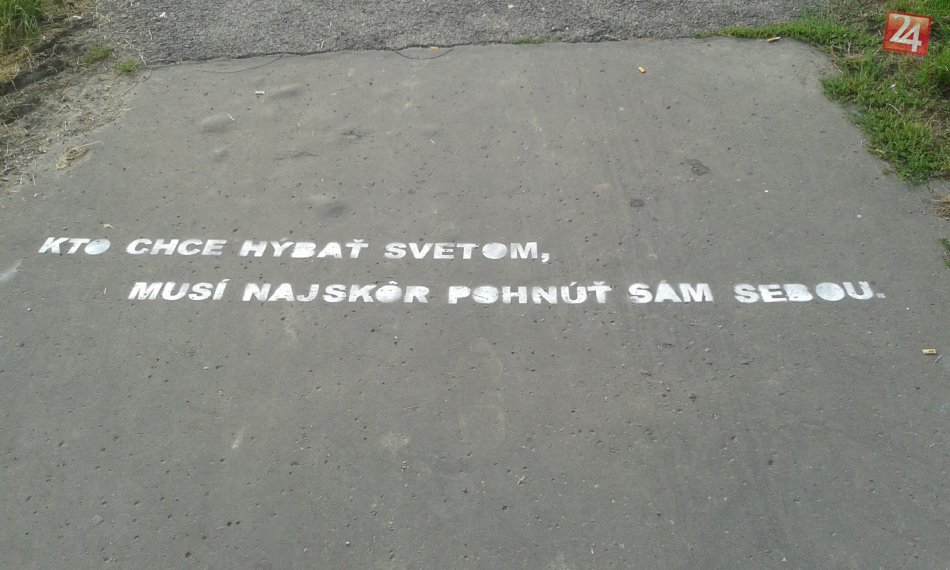 24
KTO CHCE HÝBAŤ SVETOM,
MUSÍ NAJSKÔR POHNÚŤ SÁM SEBOU.